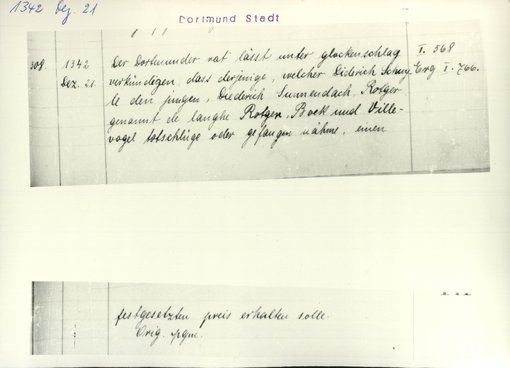 1342 Dez. 21
Dortmund Stadt
308. 1342 Der Dortmunder rat lässt unter glockenschlag I. 568
Dez. 21. verkündigen, dass derjenige, welcher Diderich Erg I. 766.
le den jungen, Diederich Sunnendach, Rotger
genannt de langhe Rotger, Bock und Ville-
vogel totschlüge oder gefangen nähme, einen
festgesetzten preis erhalten solle.
Orig. pgm.